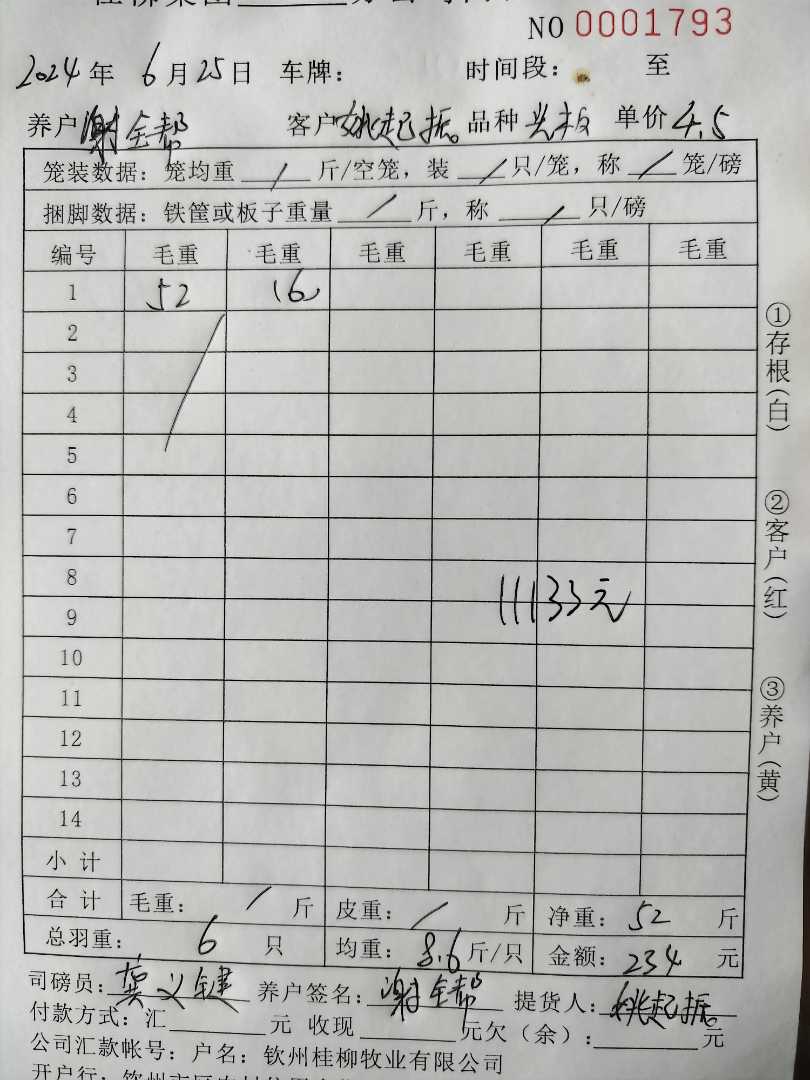 NO 0001793
2024年 6月25日 车牌: 时间段: 至
养户 谢全帮 客户 姚起振 品种 单价 4.5
笼装数据: 笼均重 / 斤/空笼, 装 / 只/笼, 称 / 笼/磅
捆脚数据: 铁筐或板子重量 / 斤, 称 / 只/磅
编号 毛重 毛重 毛重 毛重 毛重 毛重
1 52 16
2
3
4
5
6
7
8
11133元
9
10
11
12
13
14
小计
合计 毛重: / 斤 皮重: / 斤 净重: 52 斤
总羽重: 6 只 均重: 8.6 斤/只 金额: 234 元
司磅员: 龚义键 养户签名: 谢全帮 提货人: 姚起振
付款方式: 汇 元 收现 元欠(余): 元
公司汇款帐号: 户名: 钦州桂柳牧业有限公司
开户行:
①存根(白)
②客户(红)
③养户(黄)